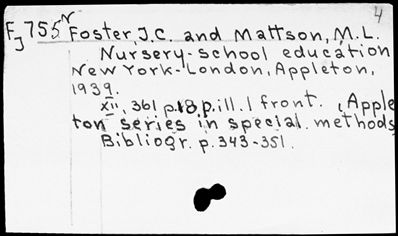 4
FJ 755N Foster, J.C. and Mattson, M.L.
Nursery-school education
New York-London, Appleton,
1939.
XII, 361 p. 18 p. ill. 1 front. (Apple
ton series in special methods
Bibliogr. p. 343-351.